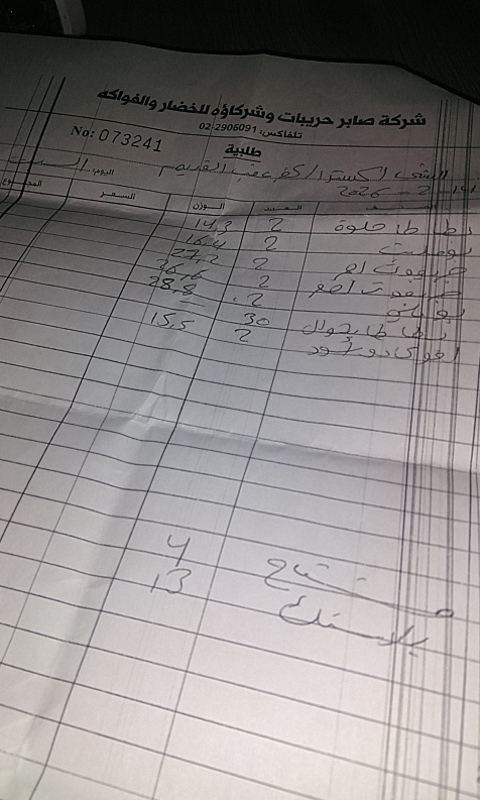 شركة صابر حريبات وشركاؤه للخضار والفواكه
تلفاكس: 02-2906091
No: 073241
طلبية
اكسترا / كفر عقب القديم اليوم: السبت
2026 - 2 -
العدد الوزن السعر المجموع
بطاطا حلوة 2 14,3
بوملت 2 16,4
جريفوت احمر 2 27,2
جريفوت اصفر 2 26,6
بوملي 2 28,8
بطاطا 30
افوكادو 2 15,5
4
بلاستك 13